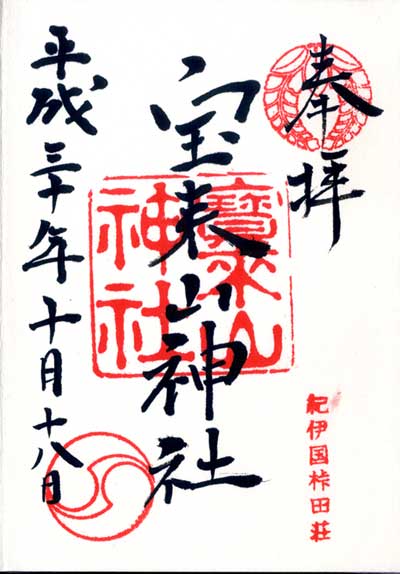 奉拝
紀伊国桛田荘
宝来山神社
寶来山神社
平成三十年十月十八日